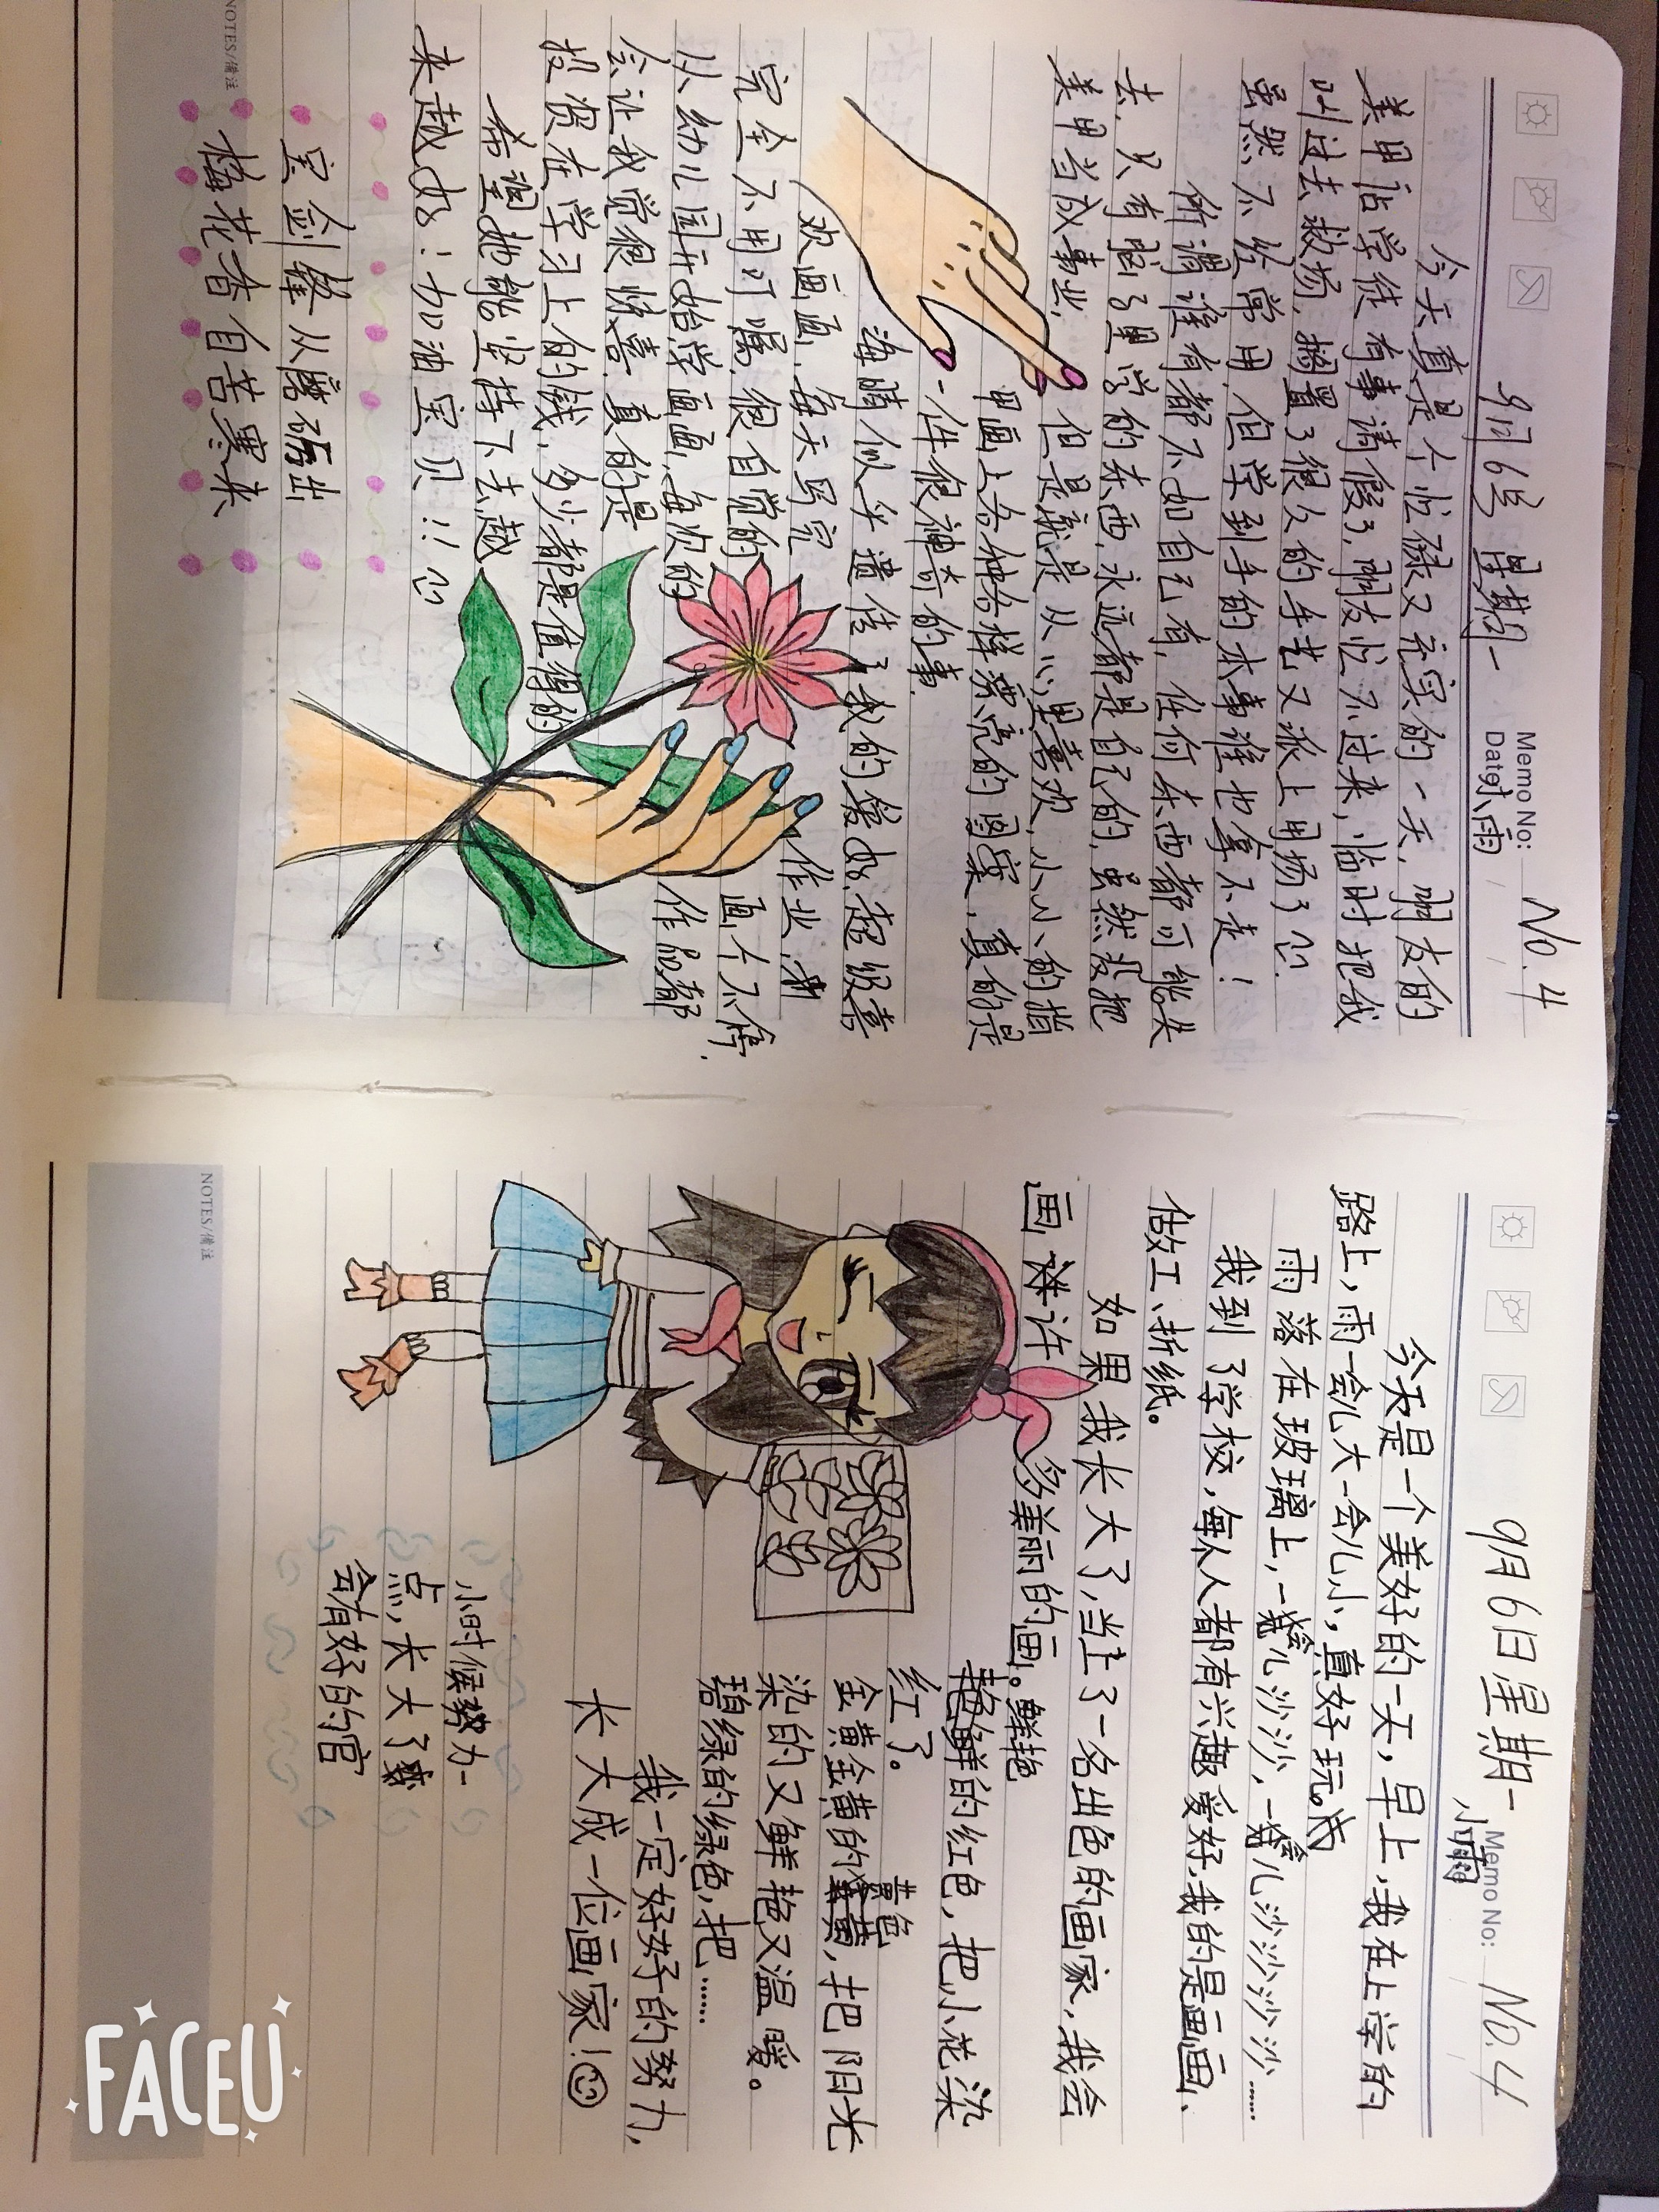 Memo No: No.4
9月6号 星期一
Date 大雨
今天真是个忙碌又充实的一天,朋友的
美甲店学徒有事请假了,朋友忙不过来,临时把我
叫过去救场,搁置了很久的手艺又派上用场了
虽然不经常用,但学到手的本事谁也拿不走!
所谓谁有都不如自己有,任何东西都可能失
去,只有脑子里学的东西,永远都是自己的,虽然没把
美甲当成事业, 但是就是从心里喜欢,小小的指
甲画上各种各样漂亮的图案,真的是
一件很神奇的事.
海晴似乎遗传了我的爱好,超级喜
欢画画,每天写完作业,
完全不用叮嘱,很自觉的画个不停.
从幼儿园开始学画画,每次的作品都
会让我觉得很惊喜,真的是
投资在学习上的钱,多少都是值得的
希望她能坚持下去,越
来越好!加油宝贝!!
宝剑锋从磨砺出
梅花香自苦寒来
NOTES/備注
9月6日星期一
小雨
Memo No: No.4
今天是一个美好的一天,早上,我在上学的
路上,雨一会儿大一会儿小,真好玩。
雨落在玻璃上,一会儿沙沙,一会儿沙沙沙沙……
我到了学校,每人都有兴趣爱好,我的是画画、
做工、折纸。
如果我长大了,当上了一名出色的画家,我会
画许多美丽的画。鲜艳
艳鲜的红色,把小花染
红了。
黄色
金黄金黄的,把阳光
染的又鲜艳又温暖。
碧绿的绿色,把……
我一定好好的努力,
长大成一位画家!
小时候努力一
点,长大了
会有好的官
NOTES/備注
FACEU